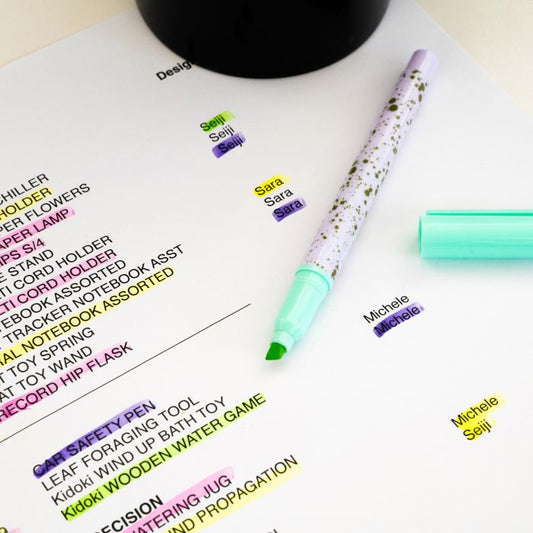 Desig
Seiji
Seiji
Seiji
Sara
Sara
Sara
Michele
Michele
Michele
Seiji
CHILLER
HOLDER
PER FLOWERS
APER LAMP
IPS S/4
E STAND
LTI CORD HOLDER
TI CORD HOLDER
TEBOOK ASSORTED
TRACKER NOTEBOOK ASST
AL NOTEBOOK ASSORTED
T TOY SPRING
AT TOY WAND
RECORD HIP FLASK
CAR SAFETY PEN
LEAF FORAGING TOOL
Kidoki WIND UP BATH TOY
Kidoki WOODEN WATER GAME
ECISION
WATERING JUG
ND PROPAGATION